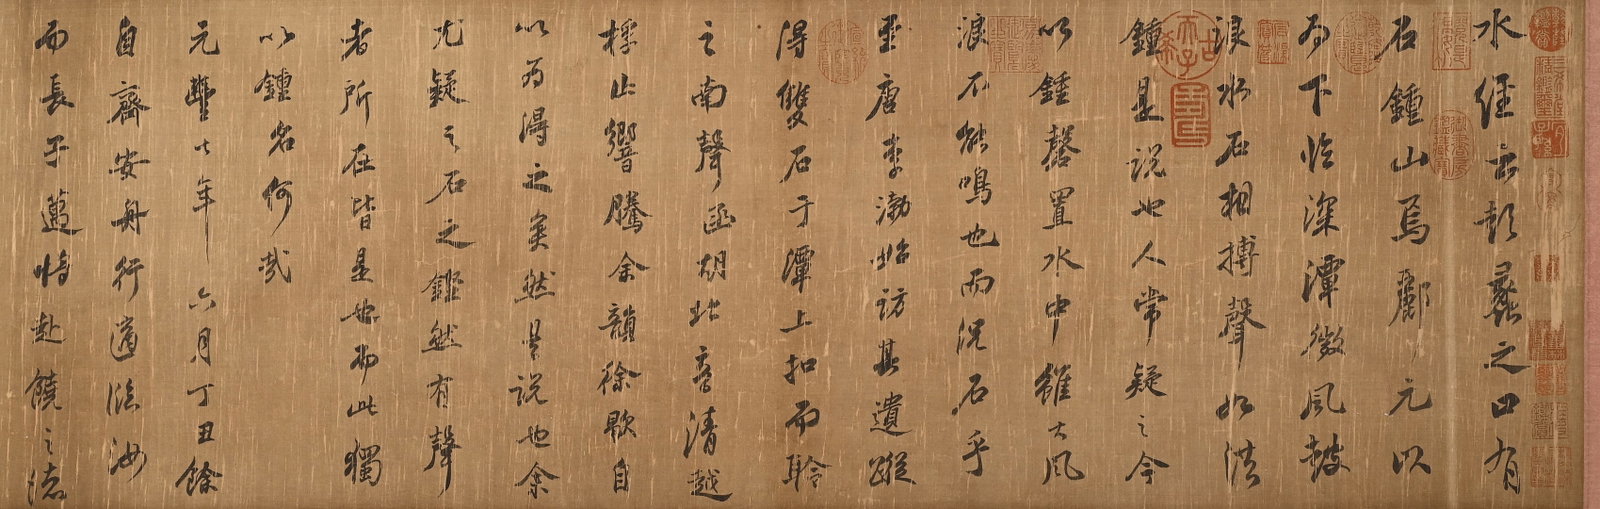 水經云彭蠡之口有
石鍾山焉酈元以
為下臨深潭微風鼓
浪水石相搏聲如洪
鍾是說也人常疑之今
以鍾磬置水中雖大風
浪不能鳴也而況石乎
至唐李渤始訪其遺蹤
得雙石于潭上扣而聆
之南聲函胡北音清越
枹止響騰余韻徐歇自
以為得之矣然是說也余
尤疑之石之鏗然有聲
者所在皆是也而此獨
以鍾名何哉
元豐七年六月丁丑餘
自齊安舟行適臨汝
而長子邁將赴饒之德
古希天子